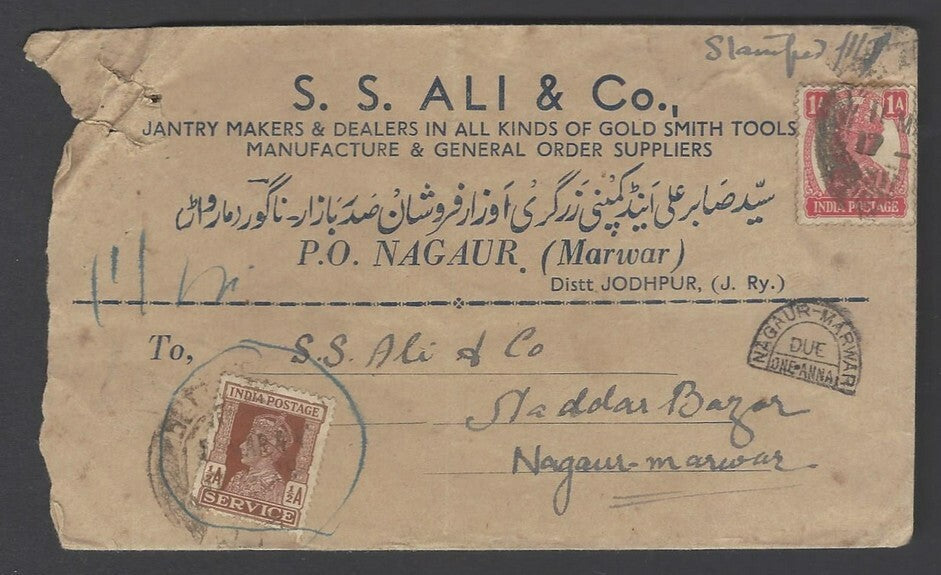 Stamped
S. S. ALI & Co.,
JANTRY MAKERS & DEALERS IN ALL KINDS OF GOLD SMITH TOOLS
MANUFACTURE & GENERAL ORDER SUPPLIERS
سیّد صابر علی اینڈ کمپنی زرگری اوزار فروشان صدر بازار - ناگور (مارواڑ)
P.O. NAGAUR. (Marwar)
Distt JODHPUR, (J. Ry.)
1A 1A
INDIA POSTAGE
To, S.S. Ali & Co
Saddar Bazar
Nagaur-marwar
NAGAUR-MARWAR
DUE
ONE-ANNA
INDIA POSTAGE
½A ½A
SERVICE